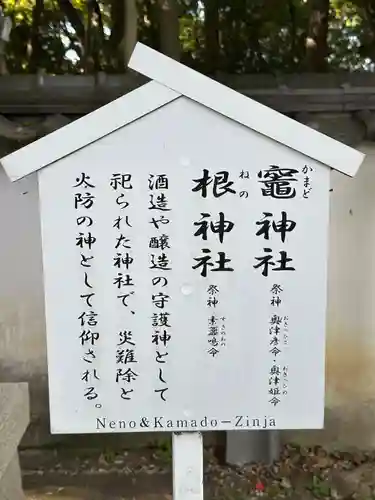 竈神社
かまど
祭神 奥津彦命・奥津姫命
おきつひこ
おきつひめ
根神社
ねの
祭神 素盞嗚命
すさのおの
酒造や醸造の守護神として
祀られた神社で、災難除と
火防の神として信仰される。
Neno&Kamado-Zinja